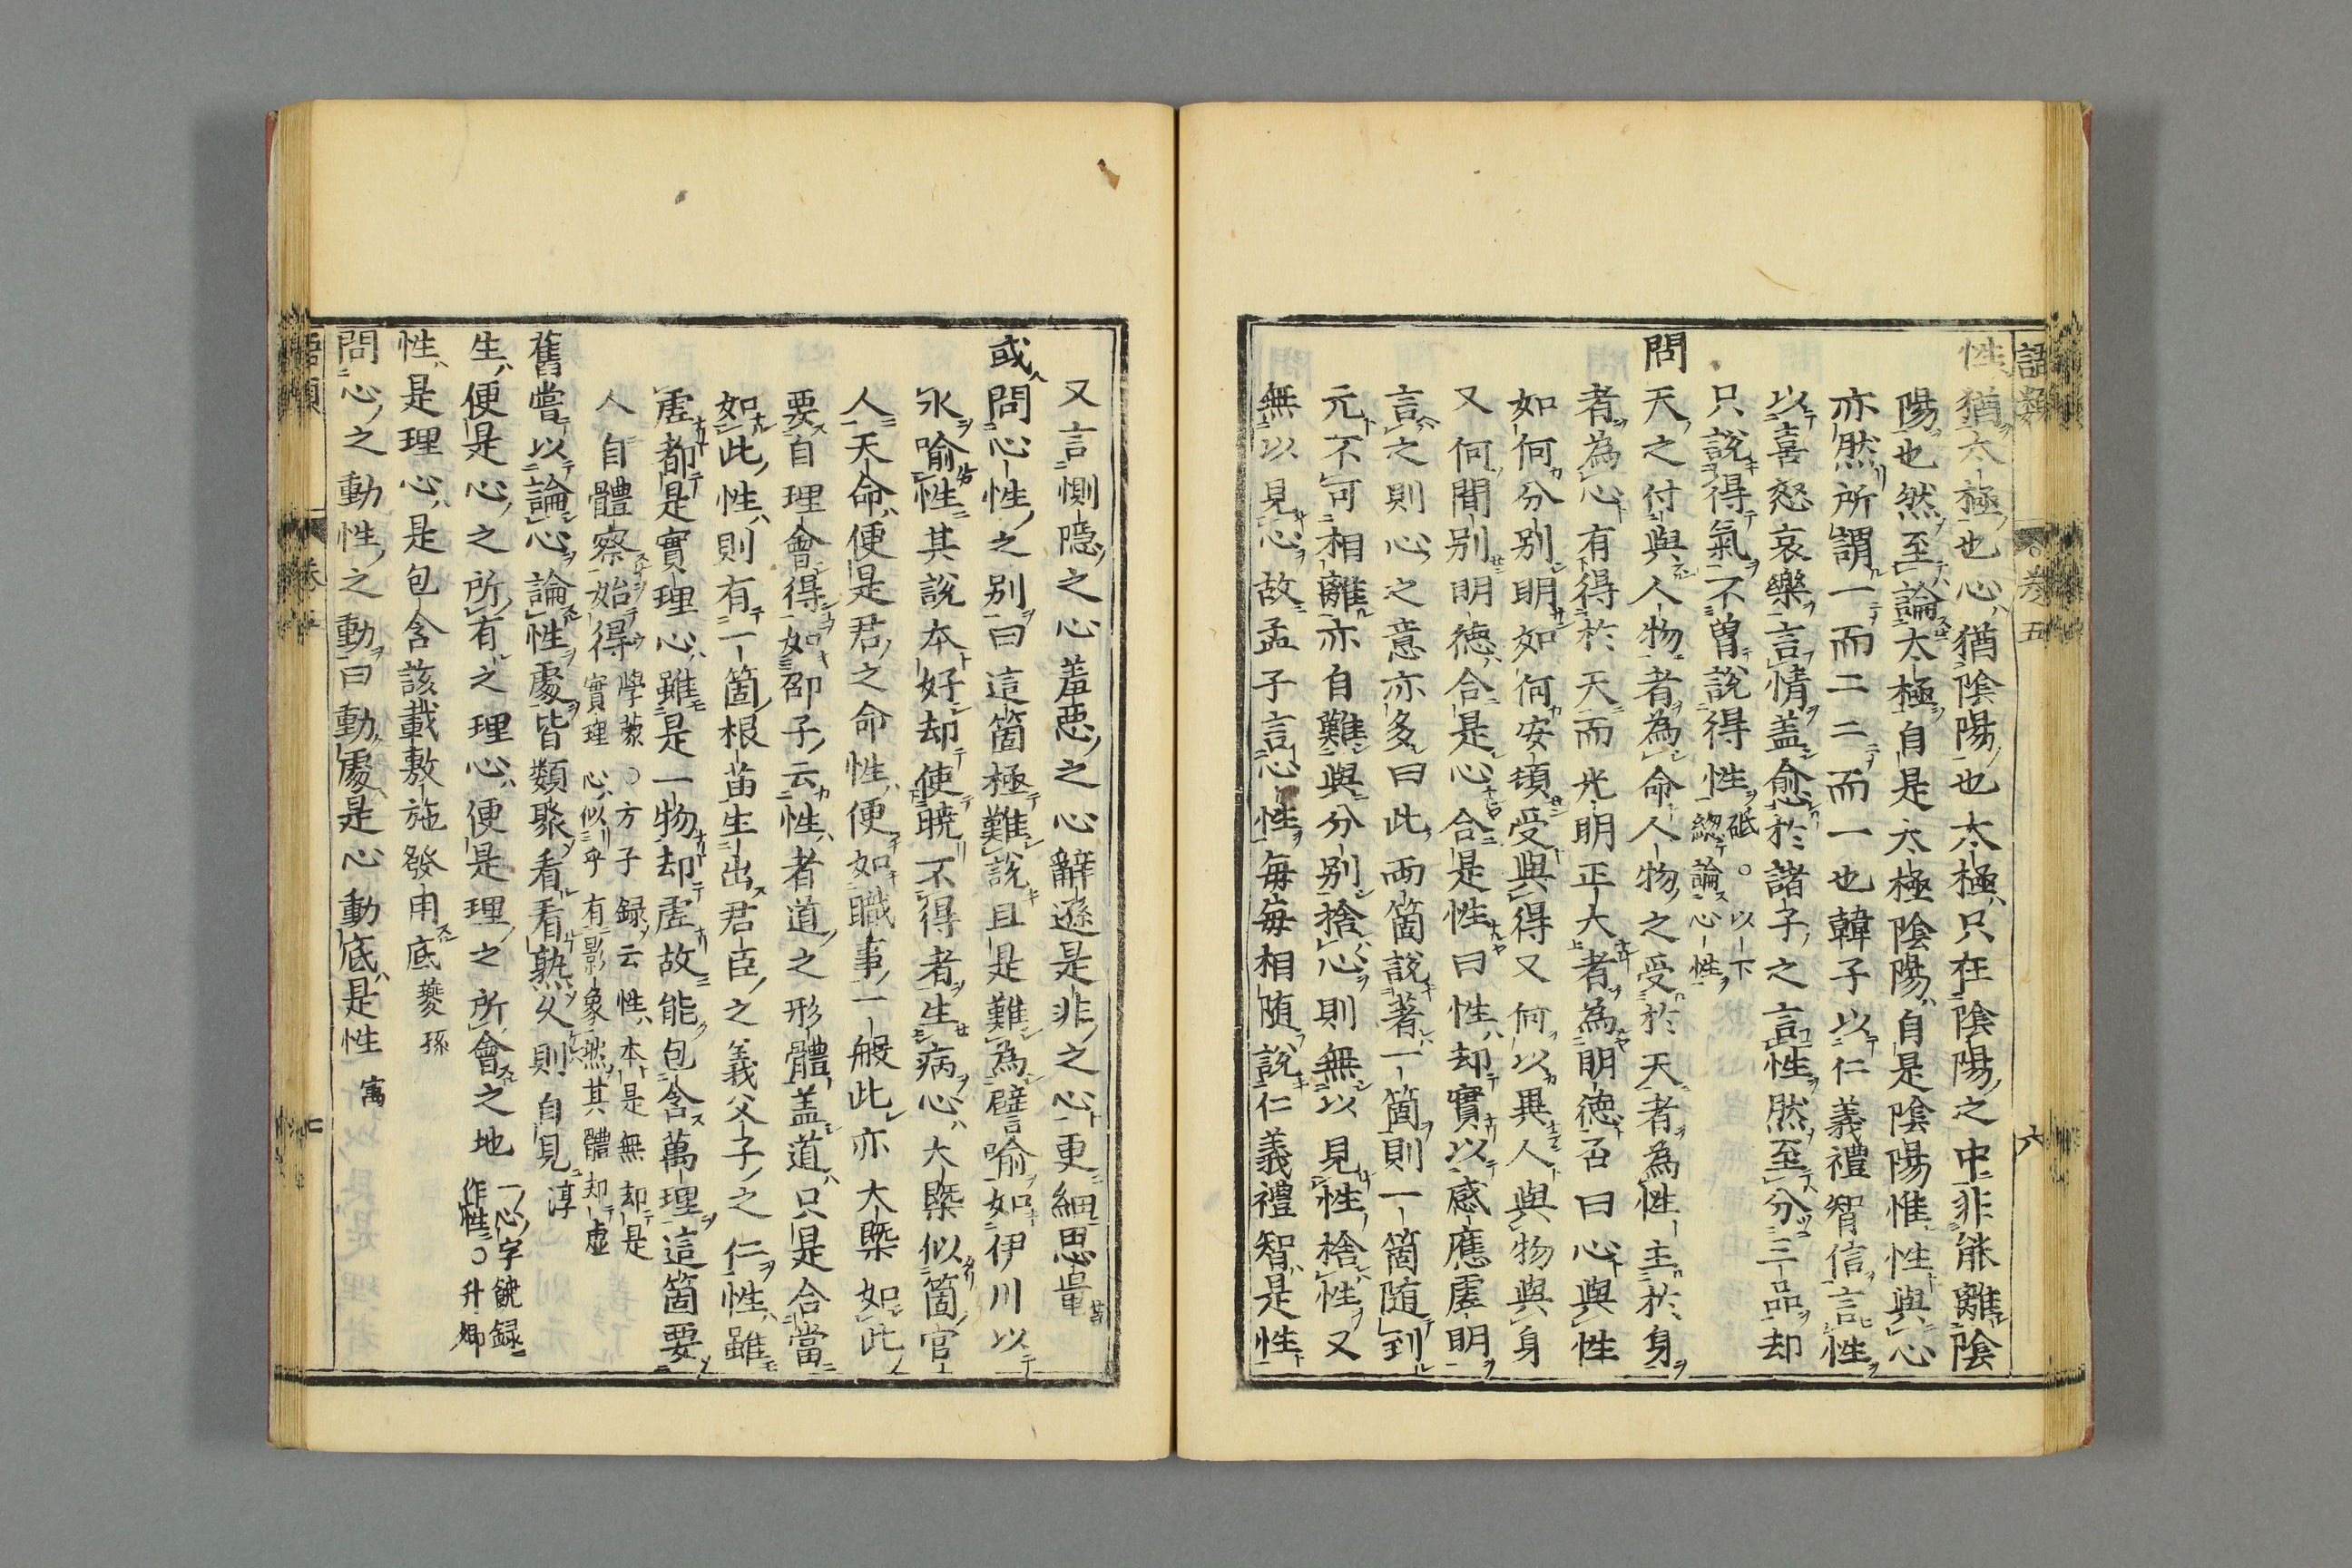 語類
卷五
六
性猶太極也心猶陰陽也太極只在陰陽之中非能離陰
陽也然至論太極自是太極陰陽自是陰陽惟性與心
亦然所謂一而二二而一也韓子以仁義禮智信言性
以喜怒哀樂言情盖愈於諸子之言性然至分三品却
只說得氣不曽說得性砥○以下
緫論心性
問天之付與人物者為命人物之受於天者為性主於身
者為心有得於天而光明正大者為明德否曰心與性
如何分别明如何安頓受與得又何以異人與物與身
又何間别明德合是心合是性曰性却實以感應虗明
言之則心之意亦多曰此兩箇說著一箇則一箇随到
元不可相離亦自難與分别捨心則無以見性捨性又
無以見心故孟子言心性毎毎相随說仁義禮智是性
又言惻隠之心羞惡之心辭遜是非之心更細思量
或問心性之别曰這箇極難說且是難為譬喻如伊川以
水喻性其說本好却使曉不得者生病心大槩似箇官
人天命便是君之命性便如職事一般此亦大槩如此
要自理會得如邵子云性者道之形體盖道只是合當
如此性則有一箇根苗生出君臣之義父子之仁性雖
虗都是實理心雖是一物却虗故能包含萬理這箇要
人自體察始得學蒙○方子録云性本是無却是
實理心似乎有影象然其體却虛
舊嘗以論心論性處皆類聚看看熟久則自見淳
性便是心之所有之理心便是理之所會之地一心字饒録
作性○升卿
性是理心是包含該載敷施發用底夔孫
問心之動性之動曰動處是心動底是性㝢
卷五
七